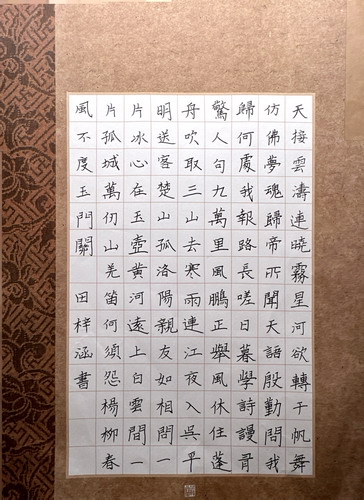 天接雲濤連曉霧星河欲轉千帆舞
仿佛夢魂歸帝所聞天語殷勤問我
歸何處我報路長嗟日暮學詩謾有
驚人句九萬里風鵬正舉風休住蓬
舟吹取三山去寒雨連江夜入吳平
明送客楚山孤洛陽親友如相問一
片冰心在玉壺黃河遠上白雲間一
片孤城萬仞山羌笛何須怨楊柳春
風不度玉門關 田梓涵書